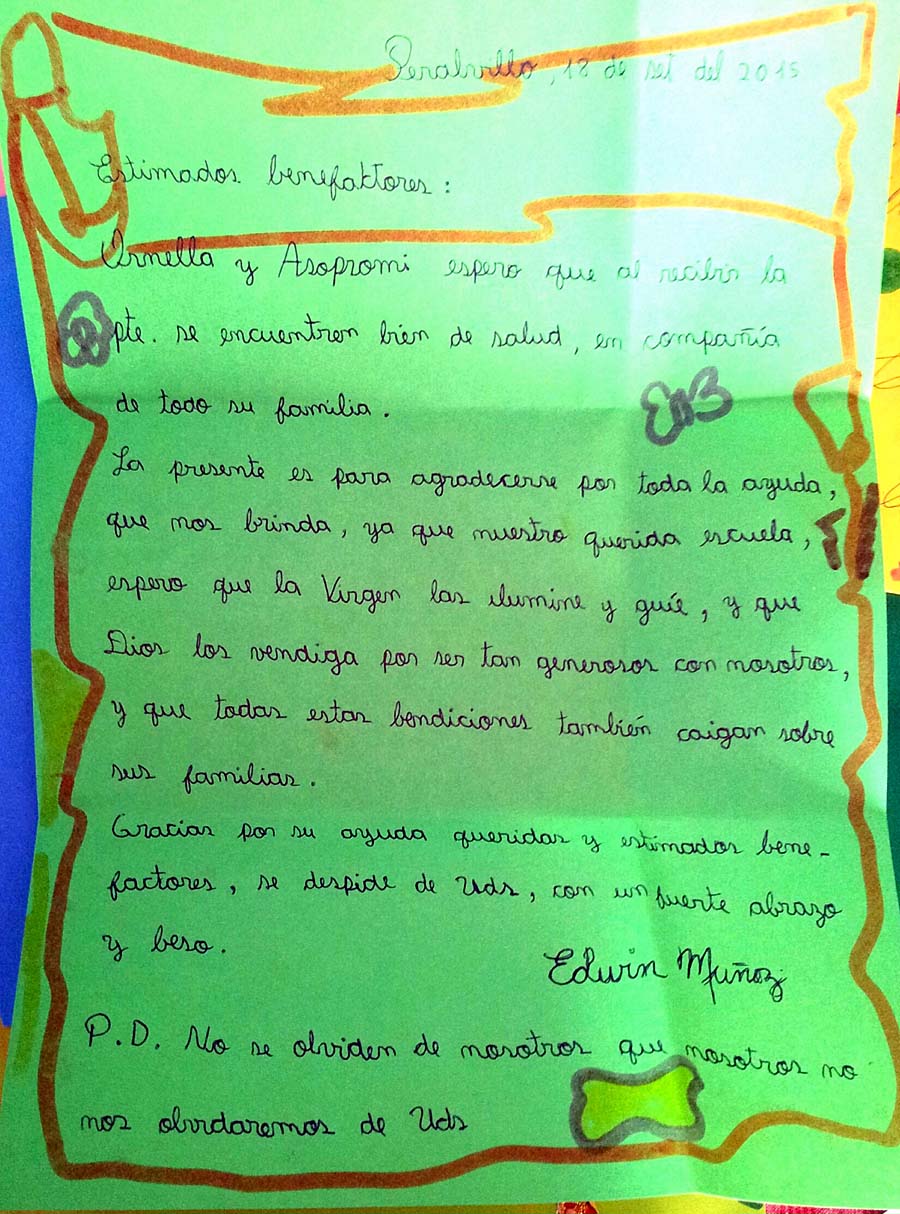 Peralvillo, 18 de set del 2015
Estimados benefaktores:
Ornella y Asopromi espero que al recibir la
pte. se encuentren bién de salud, en compañía
de todo su familia.
La presente es para agradecerse por toda la ayuda,
que nos brinda, ya que nuestro querida escuela,
espero que la Virgen las ilumine y guíe, y que
Dios los vendiga por ser tan generosos con nosotros,
y que todas estas bendiciones también caigan sobre
sus familias.
Gracias por su ayuda queridas y estimados bene-
factores, se despide de Uds, con un fuerte abrazo
y beso.
Edwin Muñoz
P.D. No se olviden de nosotros que nosotros no
nos olvidaremos de Uds